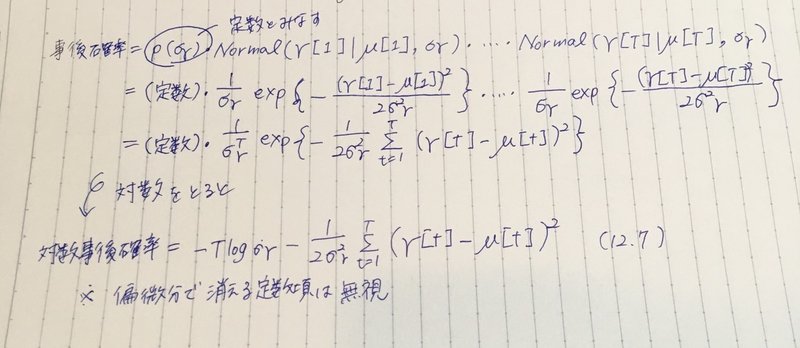 定数とみなす
事後確率 = p(σr)・Normal(r[1]|μ[1], σr)・・・・・Normal(r[T]|μ[T], σr)
= (定数)・1/σr exp{-(r[1]-μ[1])²/2σ²r}・・・・・1/σr exp{-(r[T]-μ[T])²/2σ²r}
= (定数)・1/σr^T exp{-1/2σ²r Σ_{t=1}^{T} (r[t]-μ[t])²}
対数をとると
対数事後確率 = -T log σr - 1/2σ²r Σ_{t=1}^{T} (r[t]-μ[t])² (12.7)
※ 偏微分で消える定数項は無視